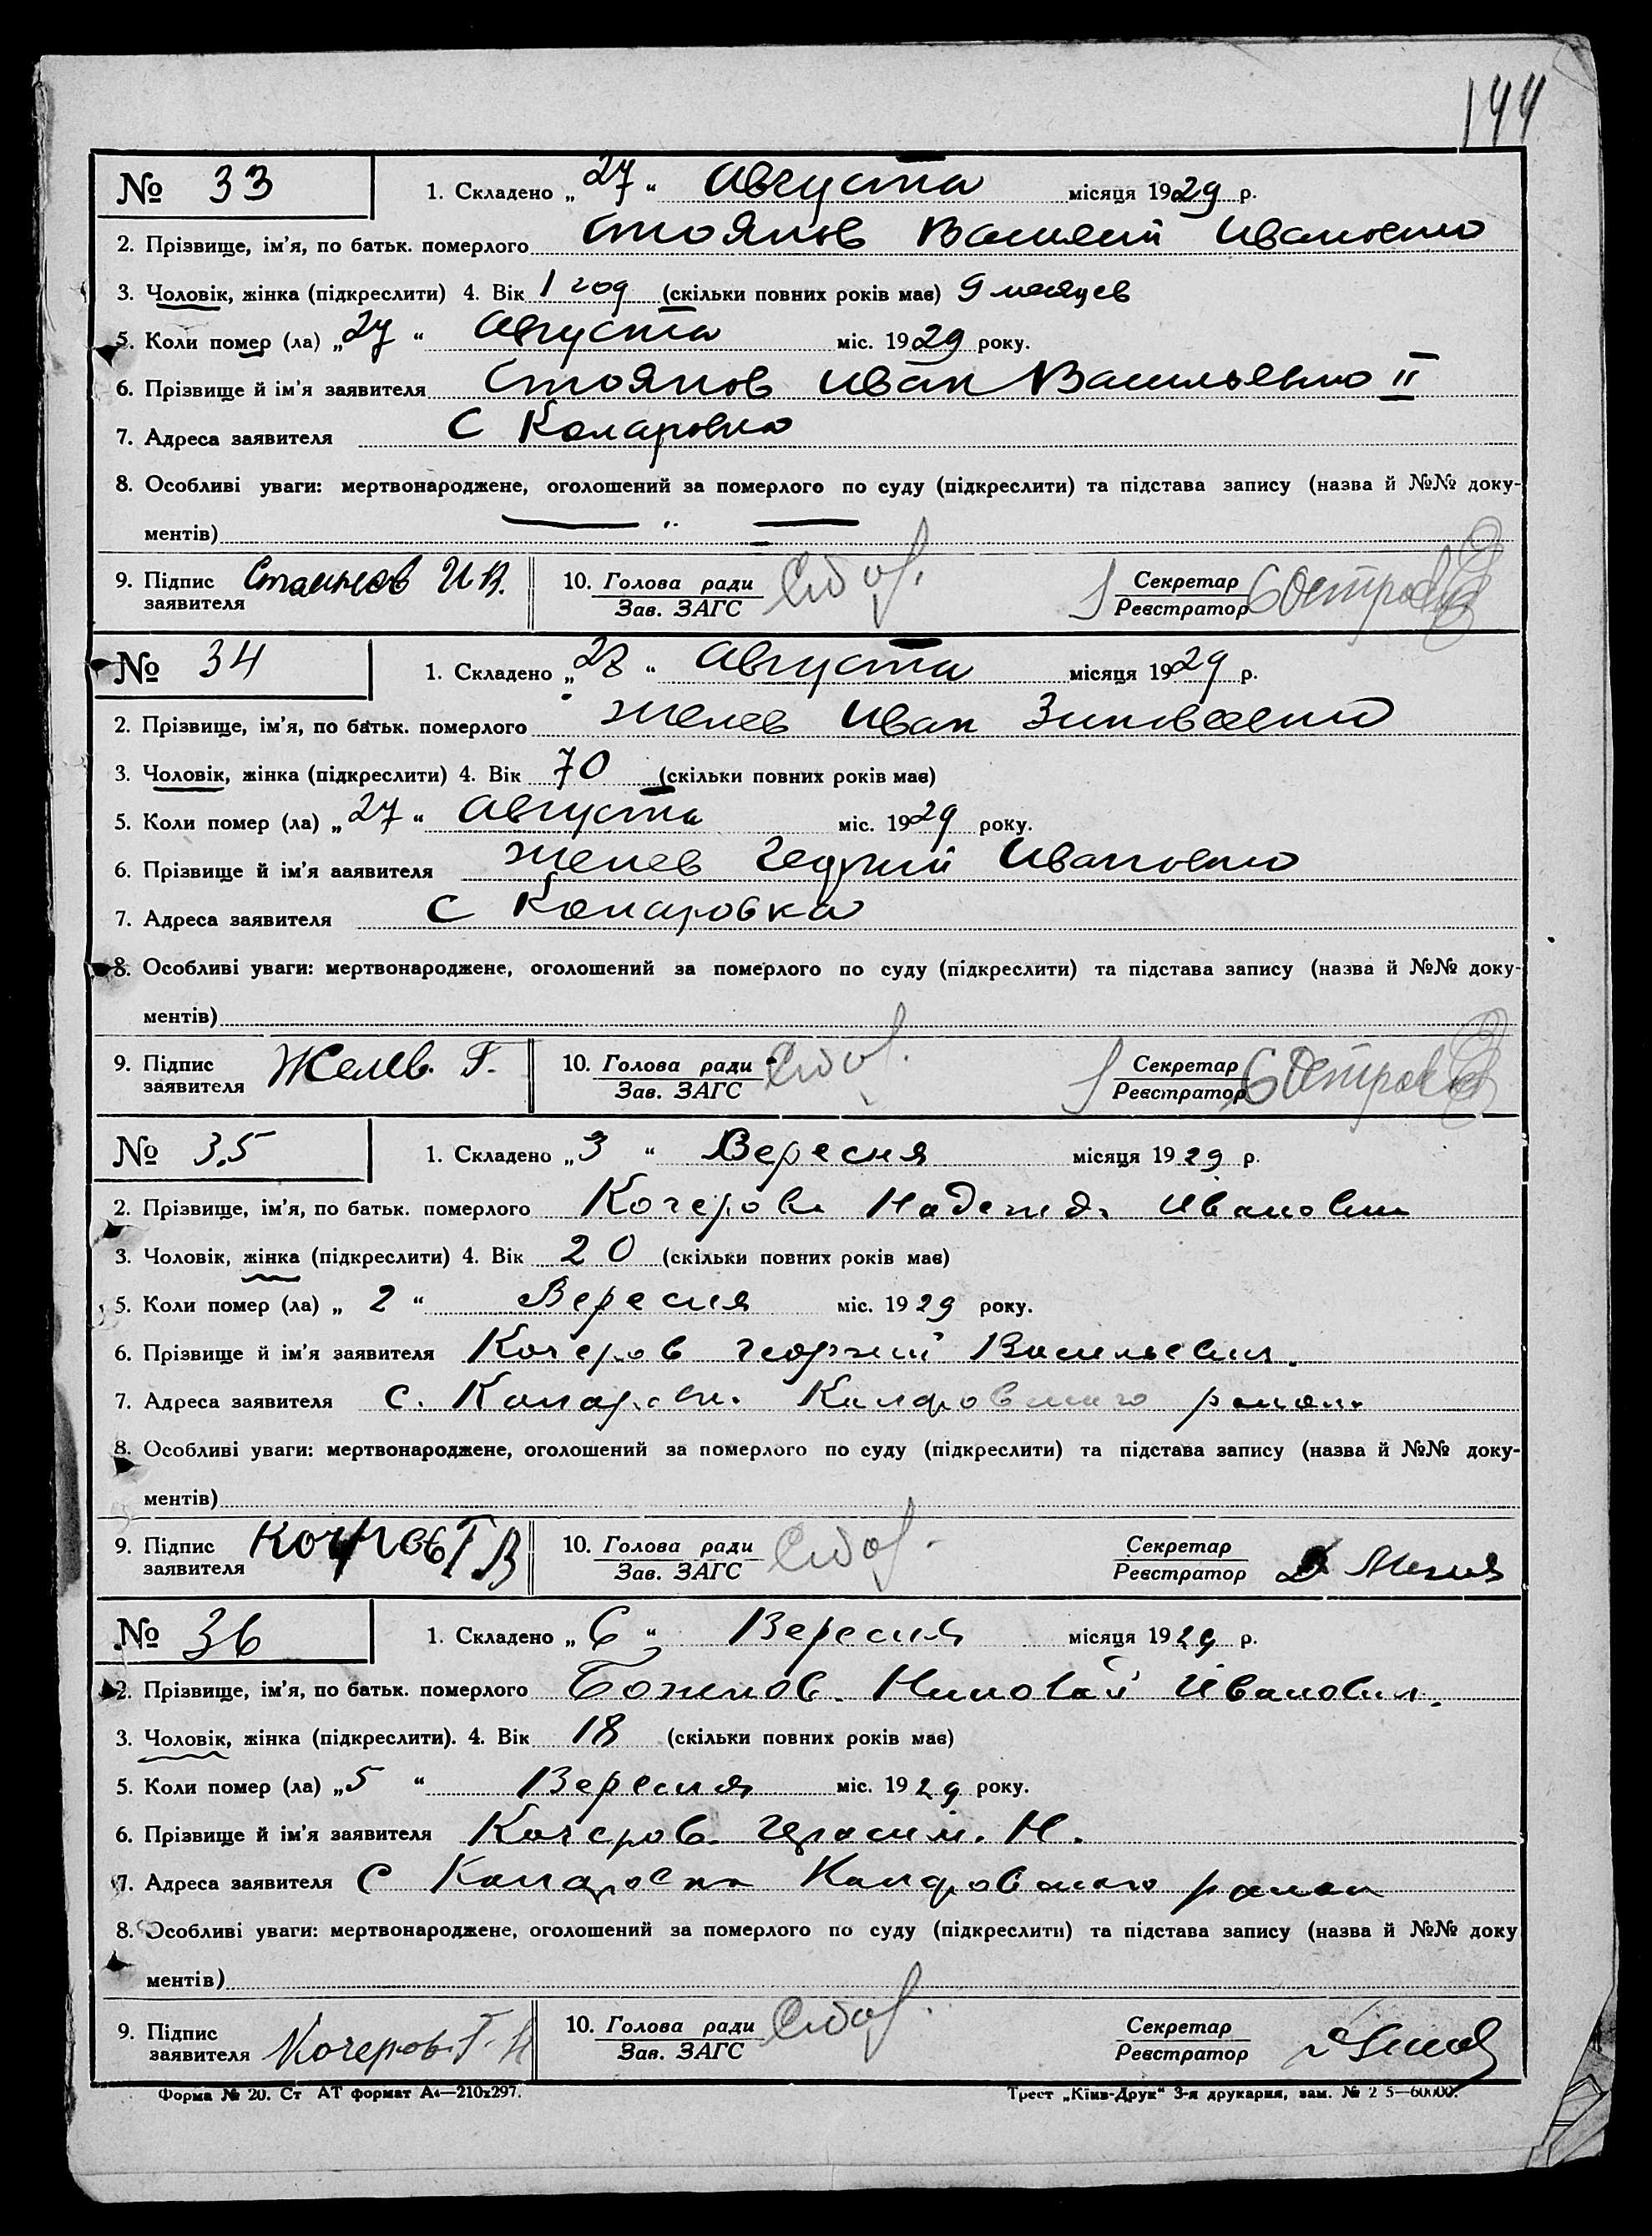 144
№ 33 1. Складено „27“ Августа місяця 1929 р.
2. Прізвище, ім’я, по батьк. померлого Стоянов Василий Иванович
3. Чоловік, жінка (підкреслити) 4. Вік 1 год (скільки повних років має) 9 месяцев
5. Коли помер (ла) „27“ Августа міс. 1929 року.
6. Прізвище й ім’я заявителя Стоянов Иван Васильевич II
7. Адреса заявителя С Коларовка
8. Особливі уваги: мертвонароджене, оголошений за померлого по суду (підкреслити) та підстава запису (назва й №№ доку-
ментів)
9. Підпис заявителя Стоянов И В. 10. Голова ради Зав. ЗАГС Секретар Реєстратор
№ 34 1. Складено „28“ Августа місяця 1929 р.
2. Прізвище, ім’я, по батьк. померлого Желев Иван Зиновеевич
3. Чоловік, жінка (підкреслити) 4. Вік 70 (скільки повних років має)
5. Коли помер (ла) „27“ Августа міс. 1929 року.
6. Прізвище й ім’я заявителя Желев Иванович
7. Адреса заявителя С Коларовка
8. Особливі уваги: мертвонароджене, оголошений за померлого по суду (підкреслити) та підстава запису (назва й №№ доку-
ментів)
9. Підпис заявителя Желев. Г. 10. Голова ради Зав. ЗАГС Секретар Реєстратор
№ 35 1. Складено „3“ Вересня місяця 1929 р.
2. Прізвище, ім’я, по батьк. померлого Кочерова Надежда Ивановна
3. Чоловік, жінка (підкреслити) 4. Вік 20 (скільки повних років має)
5. Коли помер (ла) „2“ Вересня міс. 1929 року.
6. Прізвище й ім’я заявителя Кочеров Георгий Васильевич.
7. Адреса заявителя с. Коларовка Коларовського району
8. Особливі уваги: мертвонароджене, оголошений за померлого по суду (підкреслити) та підстава запису (назва й №№ доку-
ментів)
9. Підпис заявителя Кочеров Г В 10. Голова ради Зав. ЗАГС Секретар Реєстратор
№ 36 1. Складено „6“ Вересня місяця 1929 р.
2. Прізвище, ім’я, по батьк. померлого Божков Николай Иванович.
3. Чоловік, жінка (підкреслити). 4. Вік 18 (скільки повних років має)
5. Коли помер (ла) „5“ Вересня міс. 1929 року.
6. Прізвище й ім’я заявителя Кочеров Герасим. Н.
7. Адреса заявителя С Коларовка Коларовського району
8. Особливі уваги: мертвонароджене, оголошений за померлого по суду (підкреслити) та підстава запису (назва й №№ доку
ментів)
9. Підпис заявителя Кочеров Г. Н 10. Голова ради Зав. ЗАГС Секретар Реєстратор
Форма № 20. Ст АТ формат А4—210х297. Трест „Київ-Друк“ 3-я друкарня, зам. № 2 5—60000.